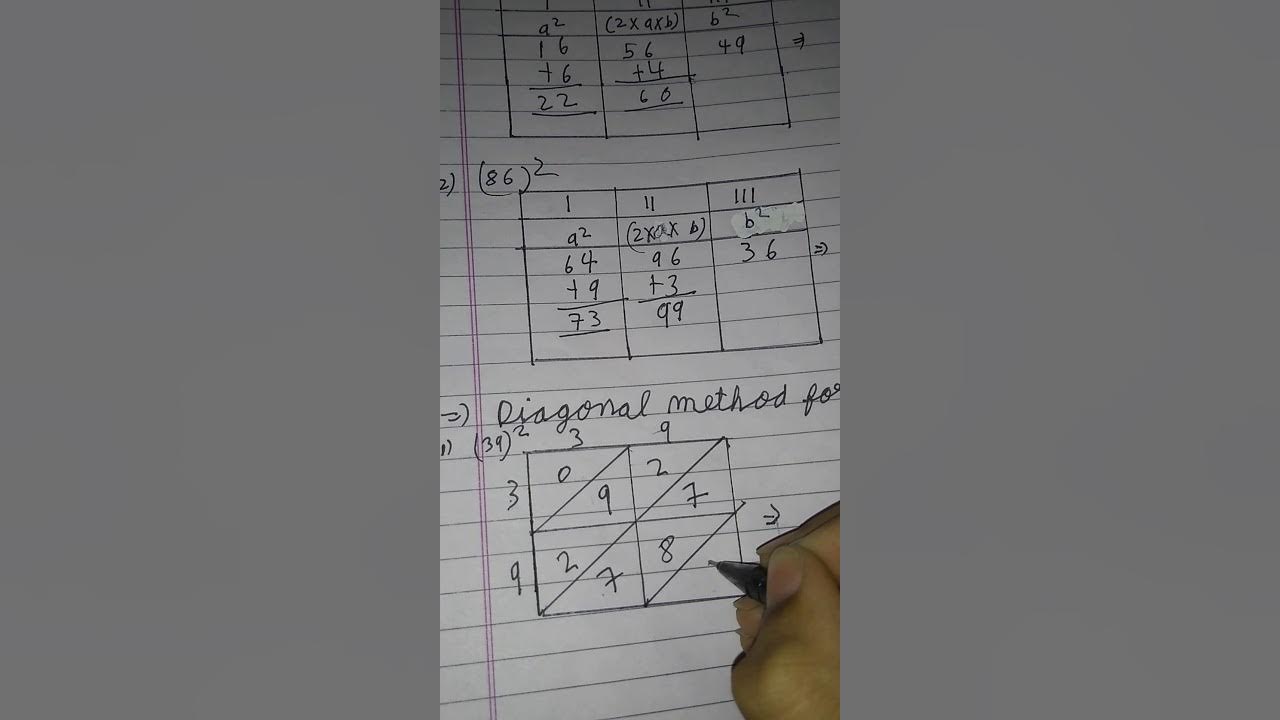 a² (2×a×b) b²
16 56 49 ⇒
+6 +4
22 60
2) (86)²
I II III
a² (2×a×b) b²
64 96 36 ⇒
+9 +3
73 99
⇒) Diagonal method for
1) (39)² 3 9
3 0 9 2 7 ⇒
9 2 7 8